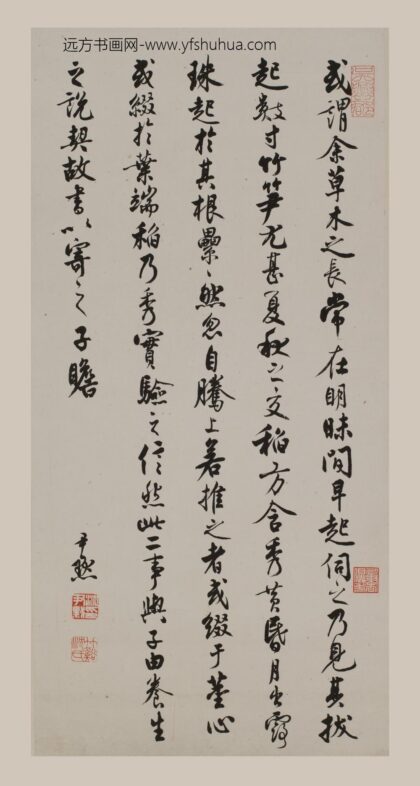 远方书画网-www.yfshuhua.com
或謂余草木之長常在明昧間早起伺之乃見其拔
起數寸竹笋尤甚夏秋之交稻方含秀黄昏月出露
珠起於其根纍〻然忽自騰上若推之者或綴于莖心
或綴於葉端稻乃秀實驗之信然此二事與子由養生
之說契故書以寄之 子瞻
尹默